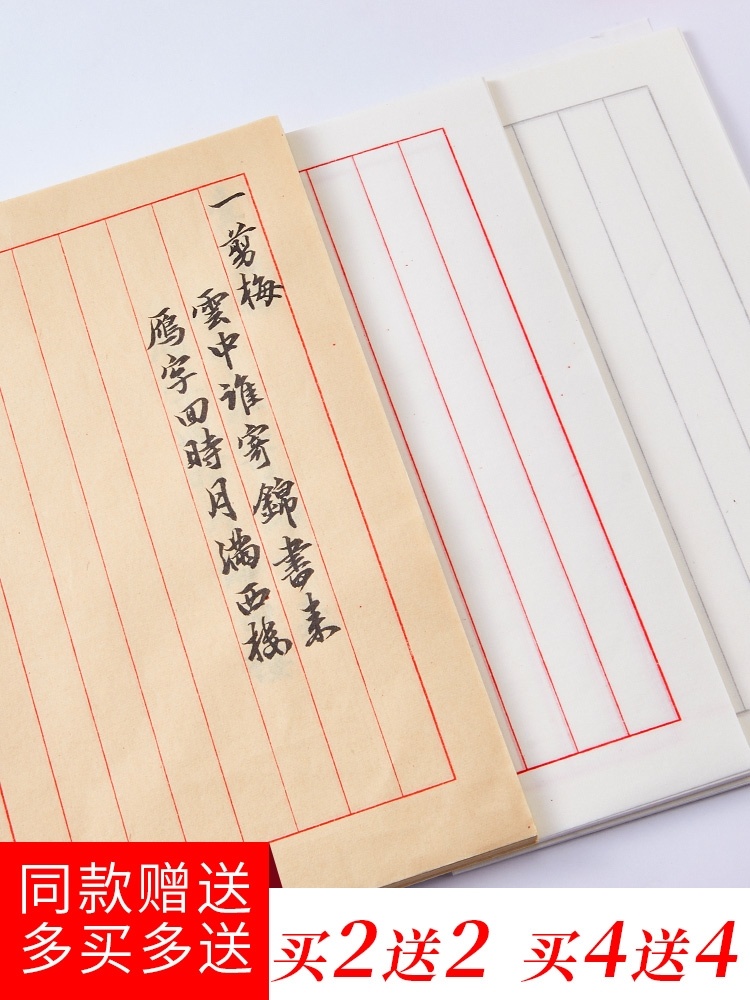 一剪梅
雲中谁寄錦書来
鴈字回時月滿西楼
同款赠送
多买多送
买2送2 买4送4